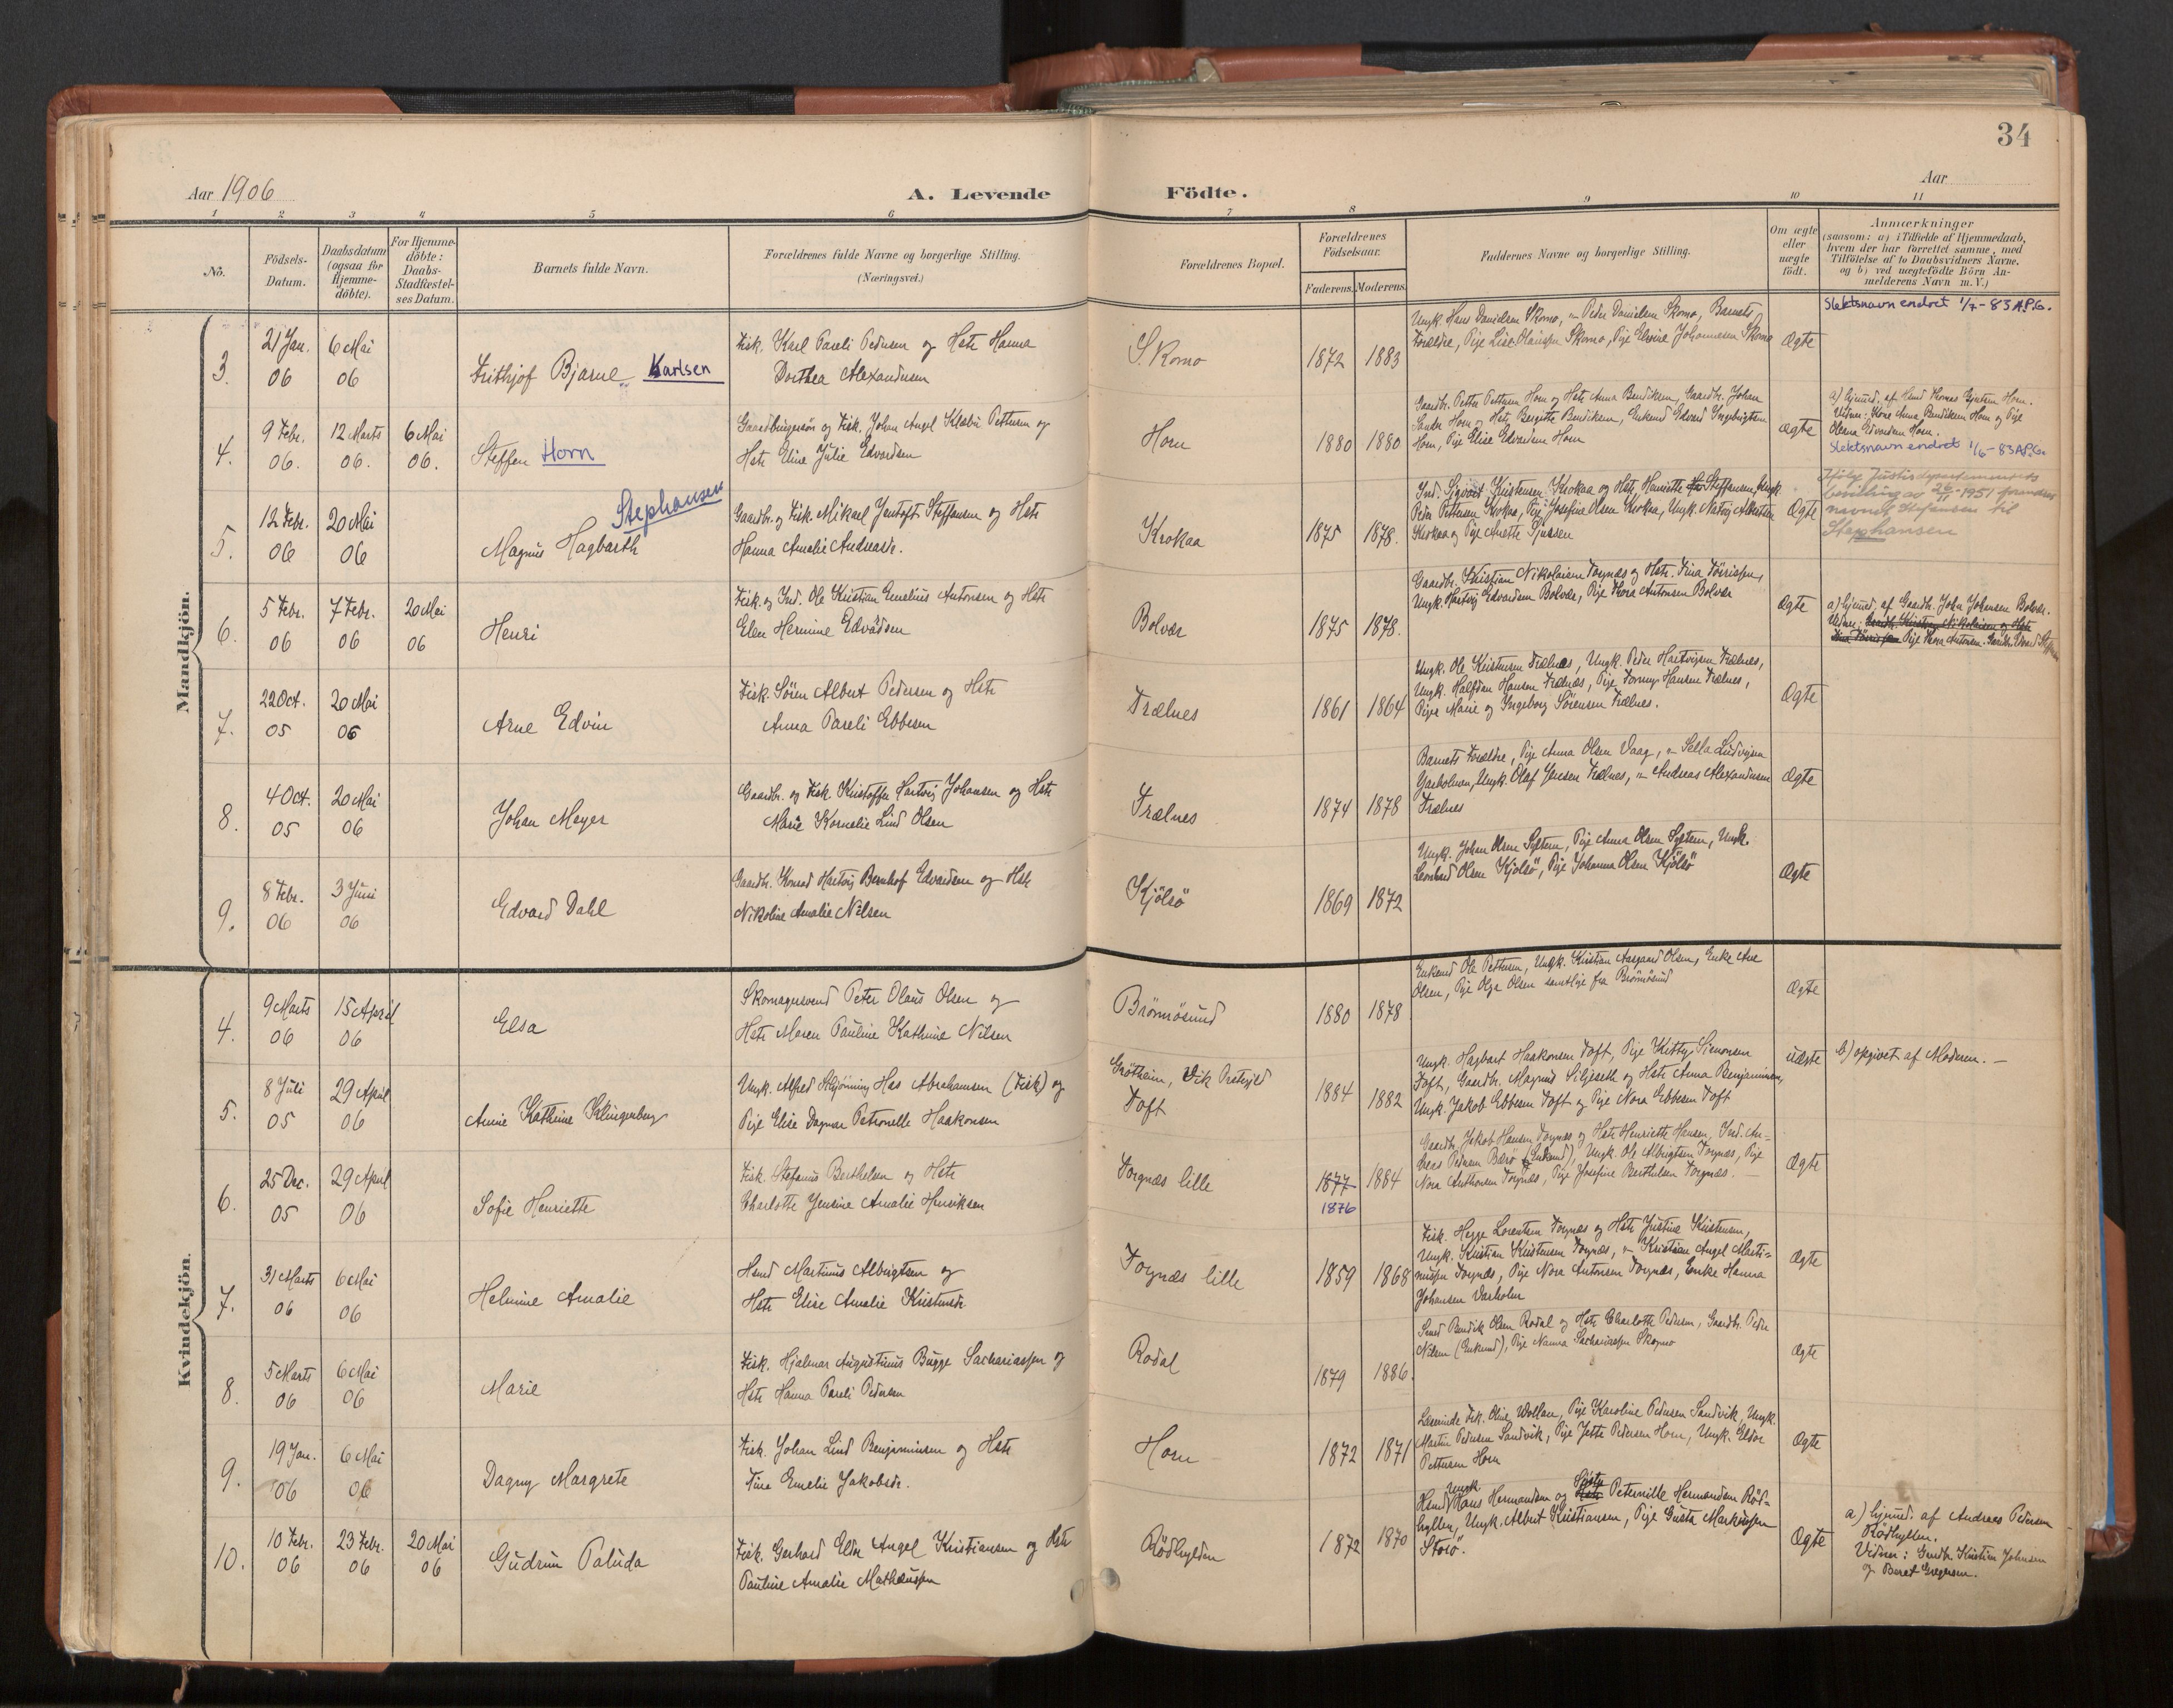 34
Aar 1906
A. Levende Födte.
Aar
1 2 3 4 5 6 7 8 9 10 11
No.
Födsels-
Datum.
Daabsdatum
(ogsaa for
Hjemme-
döbte).
For Hjemme-
döbte:
Daabs-
Stadfæstel-
ses Datum.
Barnets fulde Navn.
Forældrenes fulde Navne og borgerlige Stilling.
(Næringsvei.)
Forældrenes Bopæl.
Forældrenes
Födselsaar.
Faderens. Moderens.
Faddernes Navne og borgerlige Stilling.
Om ægte
eller
uægte
födt.
Anmærkninger
(saasom: a) i Tilfælde af Hjemmedaab,
hvem der har forrettet samme, med
Tilföielse af to Daabsvidners Navne,
og b) ved uægtefödte Börn An-
melderens Navn m. V.)
Mandkjön.
3.
21 Jan.
06
6 Mai
06
Frithjof Bjarne Karlsen
Fisk. Karl Pareli Pedersen og Hstr Hanna
Dorthea Alexandersen
Skomo
1872 1883
Ungk. Hans Danielsen Skomo, " Peder Danielsen Skomo, Barnets
Forældre, Pige Lise Olaussen Skomo, Pige Elvine Johannesen Skomo
Ægte
Slektsnavn endret 1/7-83 A.P.G.
4.
9 Febr.
06.
12 Marts
06.
6 Mai
06.
Steffen Horn
Gaardbrugersön og Fisk. Johan Angel Klæbu Pettersen og
Hstr Eline Julie Edvardsen
Horn
1880 1880
Gaardbr. Petter Pettersen Horn og Hstr Anna Bendiksen, Gaardbr. Johan
Sander Horn og Hstr Bergitte Bendiksen, Enkemd Edvard Ingebrigtsen
Horn, Pige Elise Edvardsen Horn
Ægte
a) hjemd. af Hmd Thomas Horn.
Vidner: Kone Anna Bendiksen Horn og Pige
Oleana Edvardsen Horn.
Slektsnavn endret 1/6-83 A.P.G.
5.
12 Febr.
06
20 Mai
06
Stephansen
Magnus Hagbarth
Gaardbr. og Fisk. Mikael Jentoft Steffensen og Hstr
Hanna Amalie Andreasdr.
Krokaa
1875 1878.
Ind. Sigvart Kristensen Krokaa og Hstr Henriette Steffensen, Ungk.
Peder Pettersen Krokaa, Pige Josefine Olsen Krokaa, Ungk. Albertsen
Krokaa og Pige Anette
Ægte
Ifölge Justisdepartementets
bevilling av 26/11-1951 forandres
navnet Stefansen til
Stephansen
6.
5 Febr.
06
7 Febr.
06
20 Mai
06
Henri
Fisk. og Ind. Ole Kristian Emelius Antonsen og Hstr
Elen Hermine Edvardsen
Bolvær
1875 1878.
Gaardbr. Kristian Nikolaisen Torgnæs og Hstr. Tina Törrissen,
Ungk. Hartvig Edvardsen Bolvær, Pige Thora Antonsen Bolvær
Ægte
a) hjemd. af Gaardbr. Joha Johansen Bolvær.
Vidner: Gaardbr. Kristian Nikolaisen og Hstr
Tina Törrissen Pige Thora Antonsen. Gaardbr. Edvard
7.
22 Oct.
05
20 Mai
06
Arne Edvin
Fisk. Sören Albert Pedersen og Hstr
Anna Pareli Ebbesen
Trælnes
1861 1864
Ungk. Ole Kristensen Trælnes, Ungk. Peder Hartvigsen Trælnes,
Ungk. Halfdan Hansen Trælnes, Pige Hansen Trælnes,
Pige Marie og Ingeborg Sörensen Trælnes.
Ægte
8.
4 Oct.
05
20 Mai
06
Johan Meyer
Gaardbr. og Fisk Kristoffer Hartvig Johansen og Hstr
Marie Kornelie Lind Olsen
Trælnes
1874 1878
Barnets Forældre, Pige Anna Olsen Vaag, " Sella Ludvigsen
Ungk. Olaf Jensen Trælnes, " Andreas Alexandersen
Trælnes
Ægte
9.
8 Febr.
06
3 Juni
06
Edvard Dahl
Gaardbr. Konrad Hartvig Bernhof Edvardsen og Hstr
Nikoline Amalie Nilsen
Kjölsö
1869 1872
Ungk. Johan Olsen Sylteren, Pige Anna Olsen Sylteren, Ungk.
Leonhard Olsen Kjölsö, Pige Johanna Olsen Kjölsö
Ægte
Kvindekjön.
4.
9 Marts
06
15 April
06
Elsa
Skomagersvend Peter Olaus Olsen og
Hstr Maren Pauline Kathrine Nilsen
Brönnösund
1880 1878
Enkemd Ole Pettersen, Ungk. Kristian Aasgaard Olsen, Enke Ane
Olsen, Pige Olga Olsen samtlige fra Brönnösund
Ægte
5.
8 Juli
05
29 April
06
Anine Kathrine Klingenberg
Ungk. Alfred Skjönning Has Abrahamsen (Fisk) og
Pige Elise Dagmar Petronelle Haakonsen
Grötheim, Vik Prstgjld
Toft
1884 1882
Ungk. Hagbart Haakonsen Toft, Pige Kitty Simonsen
Toft, Gaardbr. Magnus Siljeseth og Hstr Anna Benjaminsen,
Ungk. Jakob Ebbesen Toft og Pige Nora Ebbesen Toft
uægte
b) opgivet af Moderen. —
6.
25 Dec.
05
29 April
06
Sofie Henriette
Fisk. Stefanus Berthelsen og Hstr
Charlotte Jensine Amalie Henriksen
Torgnæs lille
1877
1876
1884
Gaardbr. Jakob Hansen Torgnæs og Hstr Henriette Hansen, Ind. An=
dreas Pedersen Bærö (Enkemd), Ungk. Ole Albrigtsen Torgnæs, Pige
Nora Anthonsen Torgnæs, Pige Josefine Berthelsen Torgnæs. —
Ægte
7.
31 Marts
06
6 Mai
06
Helmine Amalie
Hsmd Martinus Albrigtsen og
Hstr Elise Amalie Kristensdr.
Torgnæs lille
1859 1868
Fisk. Hegge Lorentsen Torgnæs og Hstr Justine Kristensen,
Ungk. Kristian Kristensen Torgnæs, " Kristian Angel Marti=
nussen Torgnæs, Pige Nora Antonsen Torgnæs, Enke Hanna
Johansen Varholm
Ægte
8.
5 Marts
06
6 Mai
06
Marie
Fisk. Hjalmar Augustinus Bugge Sachariassen og
Hstr Hanna Pareli Pedersen
Rodal
1879 1886.
Smed Bendik Olsen Rodal og Hstr Charlotte Pedersen, Gaardbr. Peder
Nilsen (Enkemd), Pige Nanna Sachariassen Skomo
Ægte
9.
19 Jan.
06
6 Mai
06
Dagny Margrete
Fisk. Johan Lind Benjaminsen og Hstr
Tina Emelie Jakobsdr.
Horn
1872 1871
Lærerinde Frk. Oline Wollan, Pige Karoline Pedersen Sandvik, Ungk.
Martin Pedersen Sandvik, Pige Jette Pedersen Horn, Ungk. Eldor
Pettersen Horn
Ægte
10.
10 Febr.
06
23 Febr.
06
20 Mai
06
Gudrun Paluda
Fisk. Gerhard Elde Angel Kristiansen og Hstr
Pauline Amalie Mathæussen
Rödhylden
1872 1870
Ungk. Hans Hermandsen og Hstr Söster Peternille Hermandsen Röd=
hyllen, Ungk. Albert Kristiansen, Pige Gusta Markussen
Storö.
Ægte
a) hjemd. af Andreas Pedersen
Rödhyllen.
Vidner: Gaardbr. Kristian Johnsen
og Beret Gregersen.